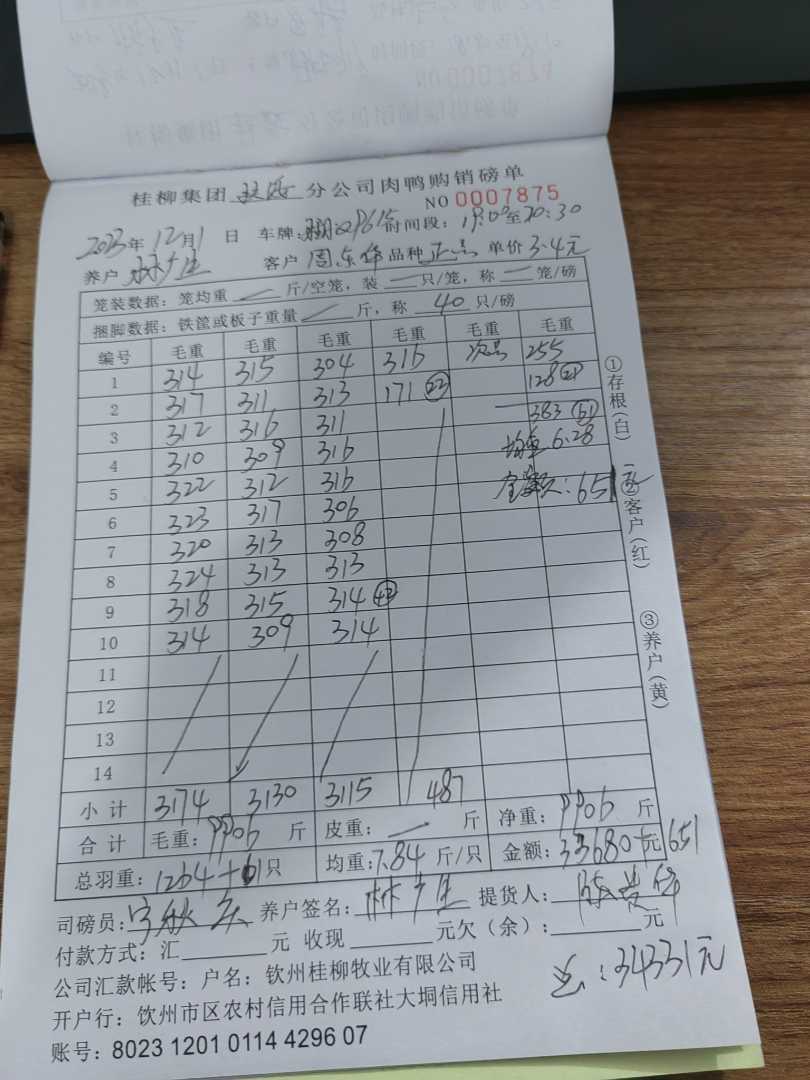 桂柳集团 分公司肉鸭购销磅单
NO 0007875
2023年 12月1日 车牌: 时间段: 19:00至20:30
养户 林广生 客户 周东华 品种 正品 单价 3.4元
笼装数据: 笼均重 斤/空笼, 装 只/笼, 称 笼/磅
捆脚数据: 铁筐或板子重量 斤, 称 40 只/磅
编号 毛重 毛重 毛重 毛重 毛重 毛重
1 314 315 304 316 次品 255
2 317 311 313 171 (23) 128 (21)
3 312 316 311 383 (61)
4 310 309 316 均重 6.28
5 322 312 316 金额: 651元
6 323 317 306
7 320 313 308
8 324 313 313
9 318 315 314 (43)
10 314 309 314
11
12
13
14
小计 3174 3130 3115 487
合计 毛重: 9906 斤 皮重: 斤 净重: 9906 斤
总羽重: 1264+61只 均重: 7.84 斤/只 金额: 33680元+651
司磅员: 养户签名: 林广生 提货人:
付款方式: 汇 元 收现 元欠(余): 元
公司汇款帐号: 户名: 钦州桂柳牧业有限公司
开户行: 钦州市区农村信用合作联社大垌信用社
账号: 8023 1201 0114 4296 07
总: 34331元
①存根(白)
②客户(红)
③养户(黄)